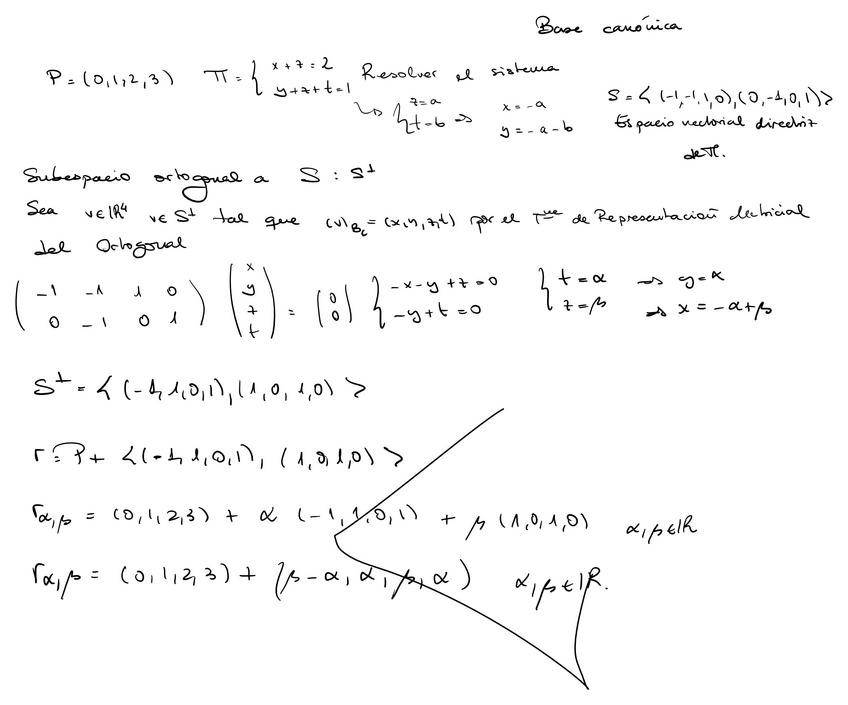 Base canónica
P = (0,1,2,3) π = { x + z = 2 Resolver el sistema
y + z + t = 1
↳ { z = a x = -a
t = b ⇒ y = -a - b
S = < (-1,-1,1,0), (0,-1,0,1) >
Espacio vectorial director
de π.
Subespacio ortogonal a S : S⊥
Sea v ∈ ℝ⁴ v ∈ S⊥ tal que (v)_Bc = (x,y,z,t) por el Tma de Representación Matricial
del Ortogonal
( -1 -1 1 0 ) ( x y z t ) = ( 0 ) { -x - y + z = 0 { t = α ⇒ y = α
( 0 -1 0 1 ) ( 0 ) -y + t = 0 z = β ⇒ x = -α + β
S⊥ = < (-1,1,0,1), (1,0,1,0) >
r = P + < (-1,1,0,1), (1,0,1,0) >
r_α,β = (0,1,2,3) + α (-1,1,0,1) + β (1,0,1,0) α,β ∈ ℝ
r_α,β = (0,1,2,3) + (β - α, α, β, α) α,β ∈ ℝ.